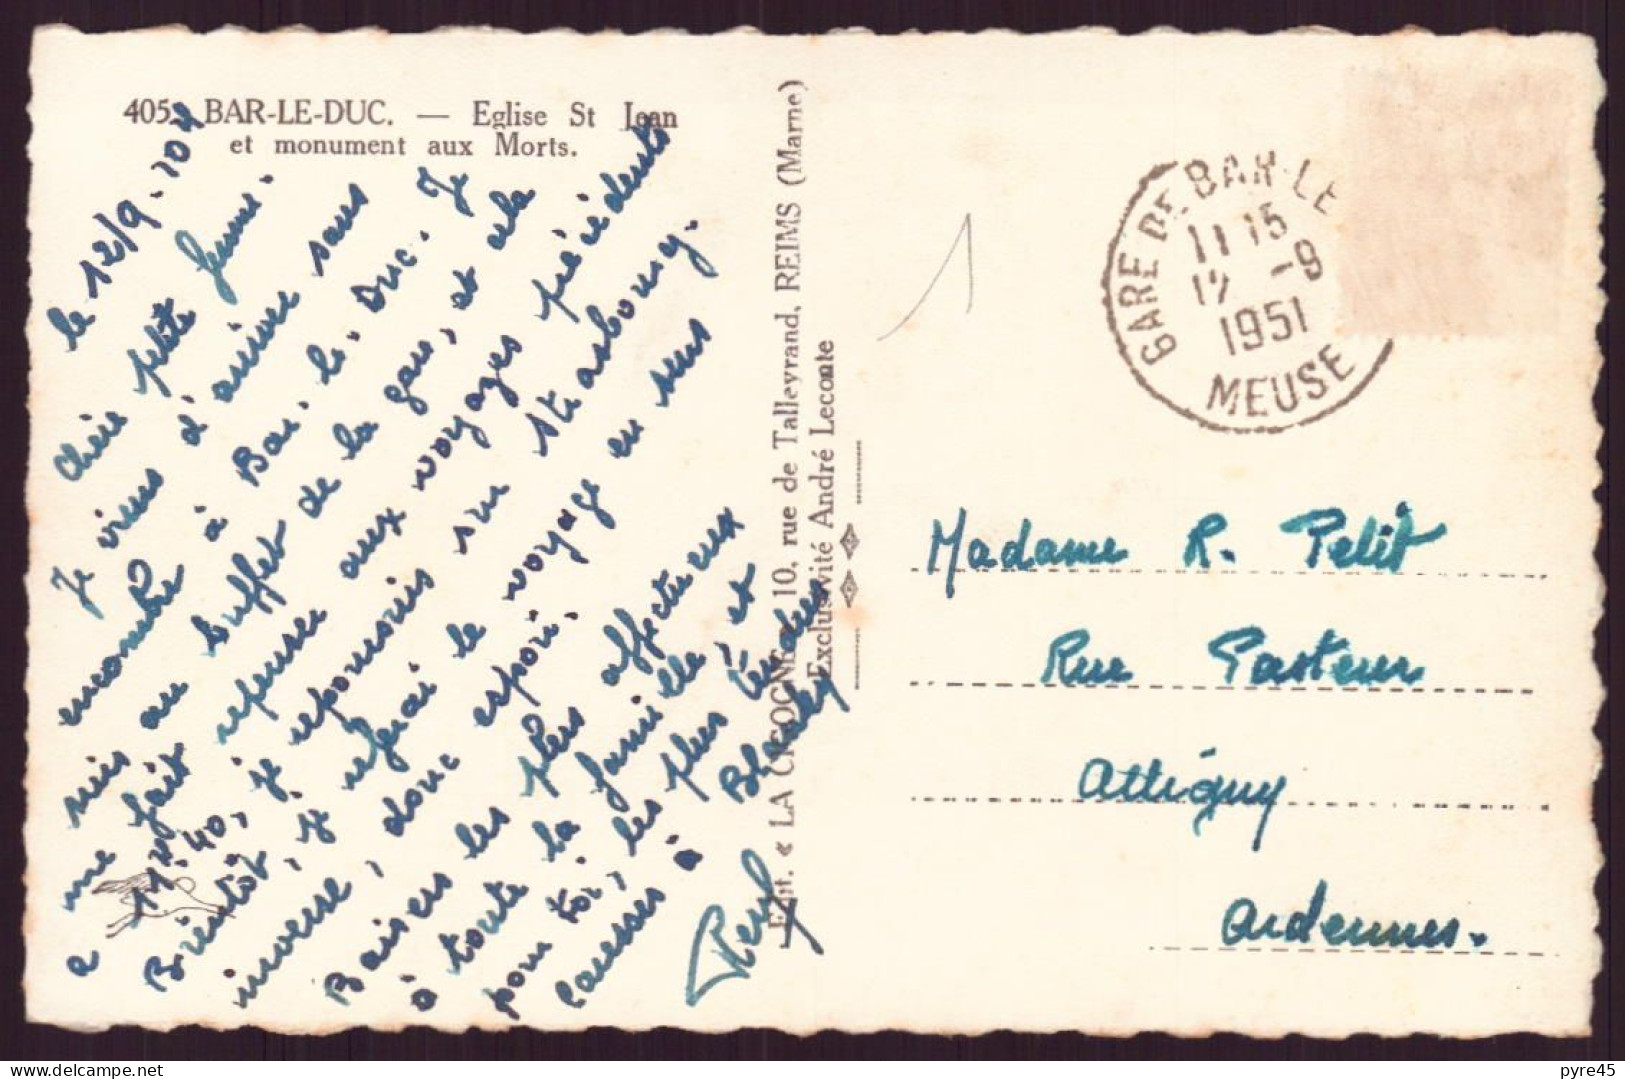 405. BAR-LE-DUC. — Eglise St Jean
et monument aux Morts.
le 12/9. 10H
Chère petite femme.
Je viens d'arriver sans
encombre à Bar. le. Duc. Je
suis au buffet de la gare, et cela
me fait repenser aux voyages précédents
a 17H40, je repars sur Strasbourg.
Bientôt, je referai le voyage en sens
inverse, donc espoir.
Baisers les plus affectueux
à toute la famille, et
pour toi, les plus tendres
caresses à
Remy
Edit. « LA CIGOGNE », 10, rue de Talleyrand, REIMS (Marne)
Exclusivité André Leconte
1
GARE DE BAR-LE
11 15
12 -9
1951
MEUSE
Madame R. Petit
Rue Pasteur
Attigny
Ardennes.
pyre45